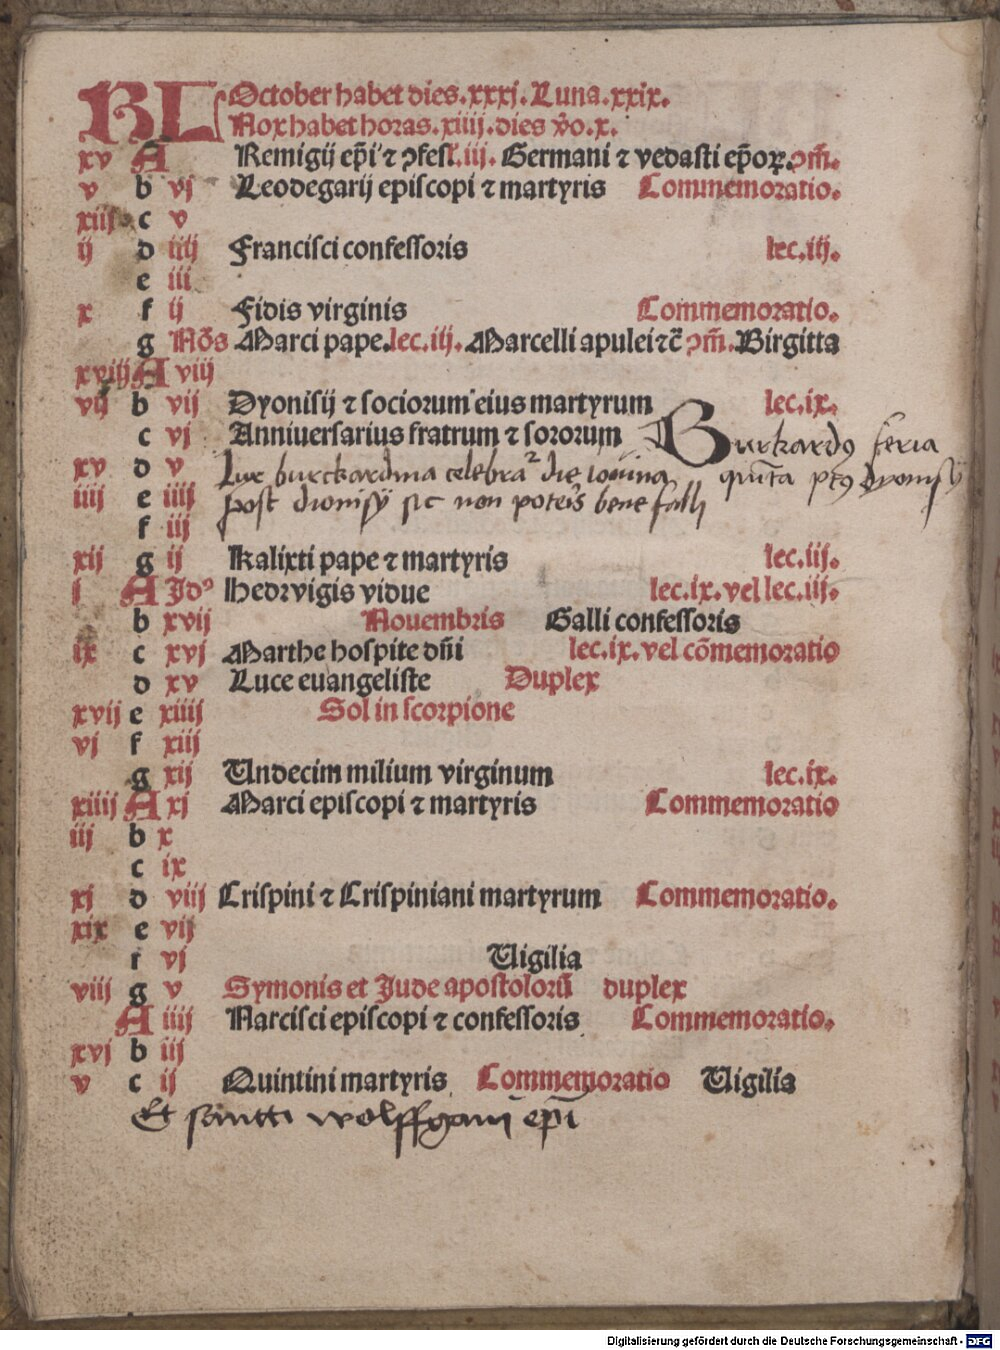 KL October habet dies.xxxj.Luna.xxix.
Nox habet horas.xiiij.dies v̄o.x.
xv A Remigij ep̄i ⁊ ↄfess.iij. Germani ⁊ vedasti ep̄oꝝ.ↄm̄.
v b vj Leodegarij episcopi ⁊ martyris Commemoratio.
xiij c v
ij d iiij Francisci confessoris lec.iij.
e iii
x f ij Fidis virginis Commemoratio.
g Nōs Marci pape.lec.iij. Marcelli apulei ⁊c̄ ↄm̄.Birgitta
xviij A viij
vij b vij Dyonisij ⁊ sociorum eius martyrum lec.ix.
c vj Anniversarius fratrum ⁊ sororum Burkardꝰ feria
xv d v Lux burckardina celebrat² die iovina quīta ptꝰ dyonisy
iiij e iiij post dionisy sic non poteris bene falli
f iij
xij g ij Kalixti pape ⁊ martyris lec.iij.
j A Jdꝰ Hedvigis vidue lec.ix.vel lec.iij.
b xvij Nouembris Galli confessoris
ix c xvj Marthe hospite dn̄i lec.ix.vel cōmemoratio
d xv Luce euangeliste Duplex
xvij e xiiij Sol in scorpione
vj f xiij
g xij Undecim milium virginum lec.ix.
xiiij A xj Marci episcopi ⁊ martyris Commemoratio
iij b x
c ix
xj d viij Crispini ⁊ Crispiniani martyrum Commemoratio.
xix e vij
f vj Uigilia
viij g v Symonis et Jude apostolorū duplex
A iiij Narcisci episcopi ⁊ confessoris Commemoratio.
xvj b iij
v c ij Quintini martyris Commemoratio Uigilia
Et sancti wolffgani ep̄i
Digitalisierung gefördert durch die Deutsche Forschungsgemeinschaft - DFG